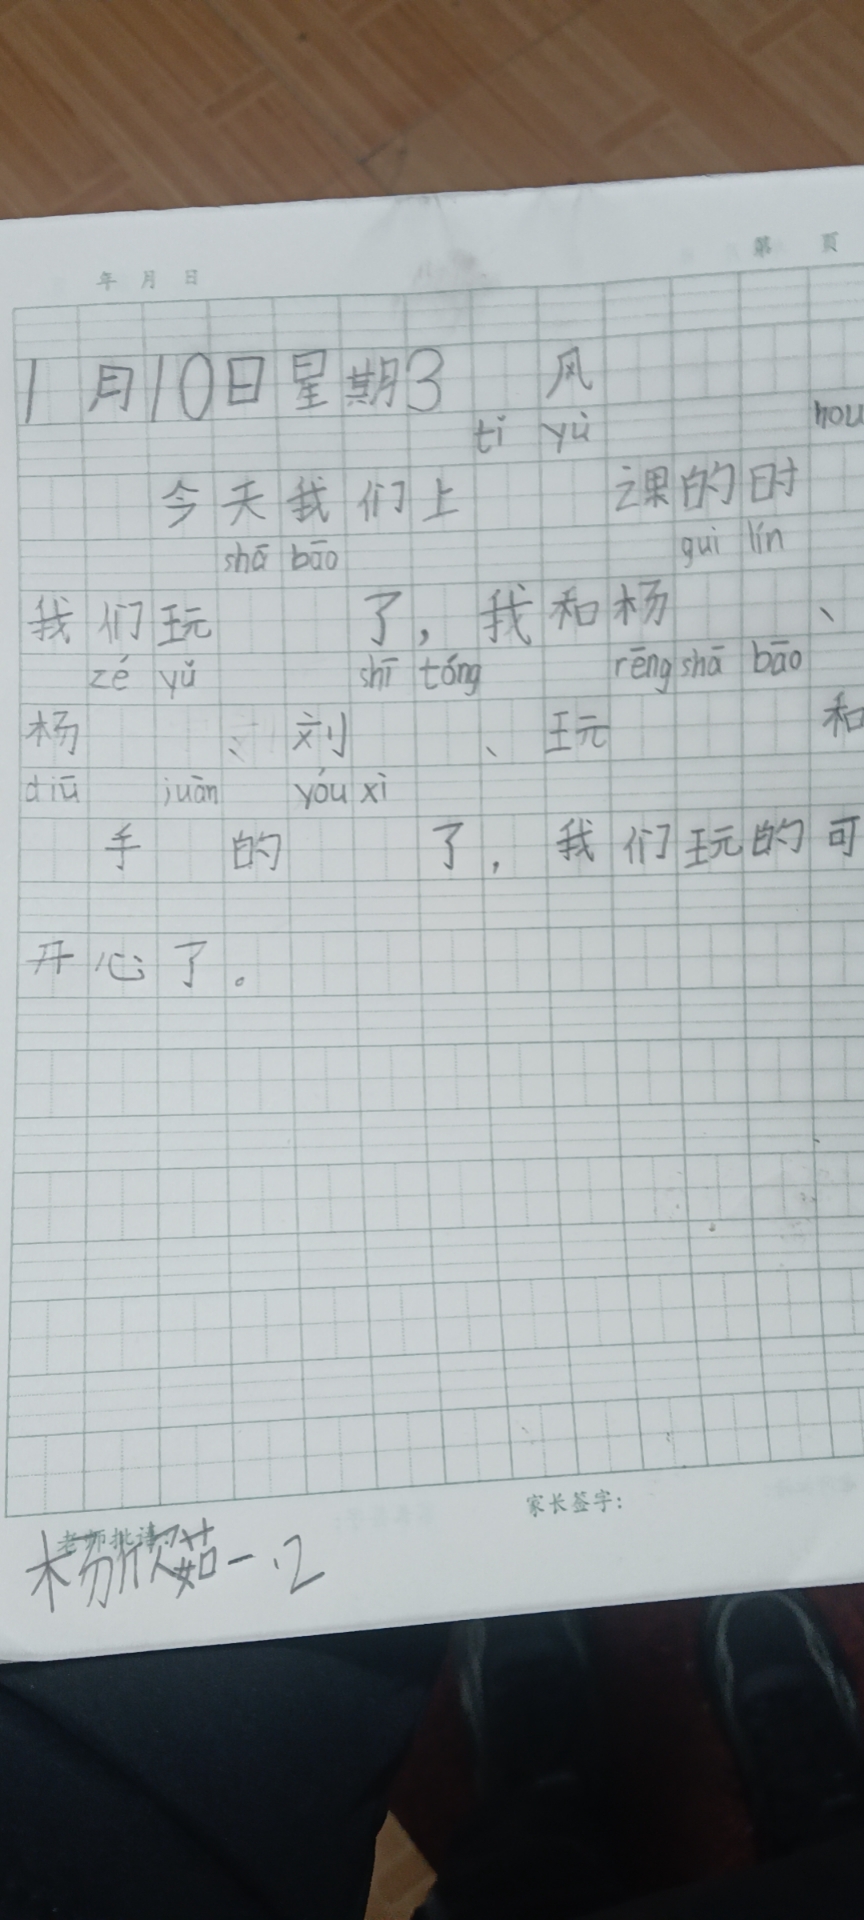 年 月 日
第 页
1月10日星期3 风
tǐ yù hou
今天我们上 课的时
shā bāo gui lín
我们玩 了，我和杨 、
zé yǔ shī tóng rēng shā bāo
杨 、刘 、玩 和
diū juān yóu xì
手 的 了，我们玩的可
开心了。
家长签字：
老师批语
杨欣茹一.2